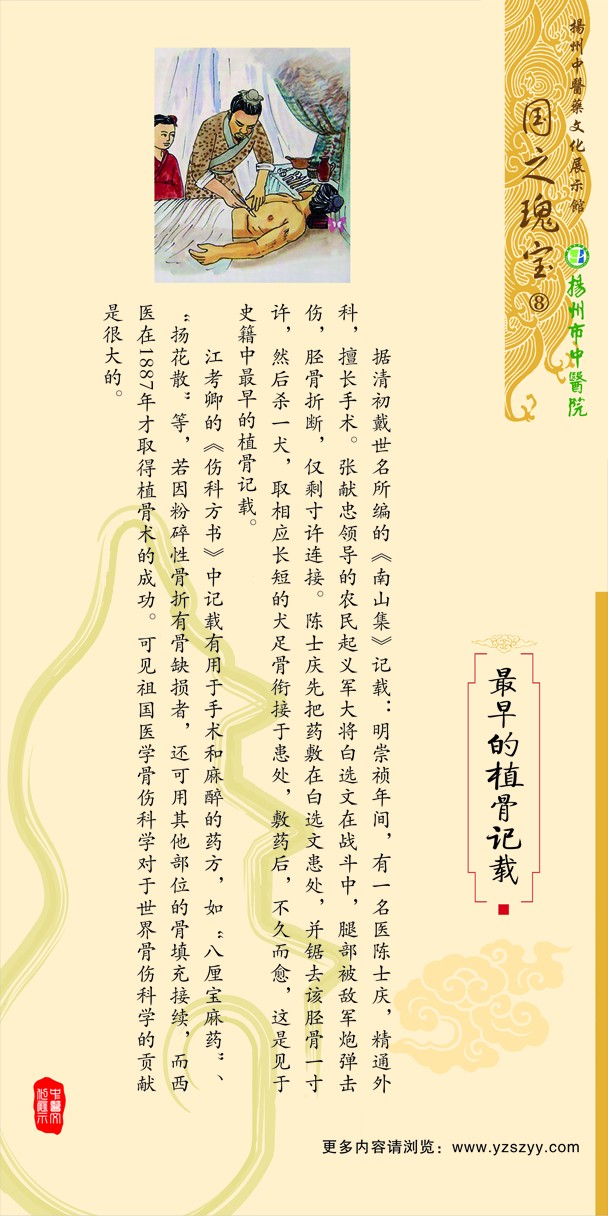 揚州中醫藥文化展示館
国之瑰宝⑧
揚州市中醫院
最早的植骨记载
据清初戴世名所编的《南山集》记载：明崇祯年间，有一名医陈士庆，精通外
科，擅长手术。张献忠领导的农民起义军大将白选文在战斗中，腿部被敌军炮弹击
伤，胫骨折断，仅剩寸许连接。陈士庆先把药敷在白选文患处，并锯去该胫骨一寸
许，然后杀一犬，取相应长短的犬足骨衔接于患处，敷药后，不久而愈，这是见于
史籍中最早的植骨记载。
江考卿的《伤科方书》中记载有用于手术和麻醉的药方，如“八厘宝麻药”、
“扬花散”等，若因粉碎性骨折有骨缺损者，还可用其他部位的骨填充接续，而西
医在1887年才取得植骨术的成功。可见祖国医学骨伤科学对于世界骨伤科学的贡献
是很大的。
更多内容请浏览：www.yzszyy.com